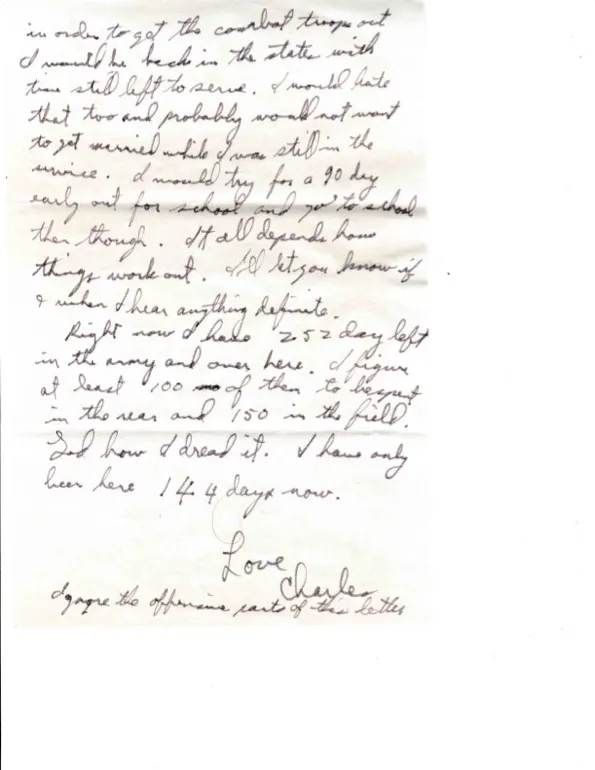 in order to get the combat troops out
I would be back in the states with
time still left to serve. I would hate
that too and probably would not want
to get married while I was still in the
service. I would try for a 90 day
early out for school and go to school
then though. It all depends how
things work out. I'll let you know if
& when I hear anything definite.
Right now I have 252 day left
in the army and over here. I figure
at least 100 of them to be spent
in the rear and 150 in the field.
God how I dread it. I have only
been here 144 days now.
Love
Charles
Ignore the offensive parts of this letter